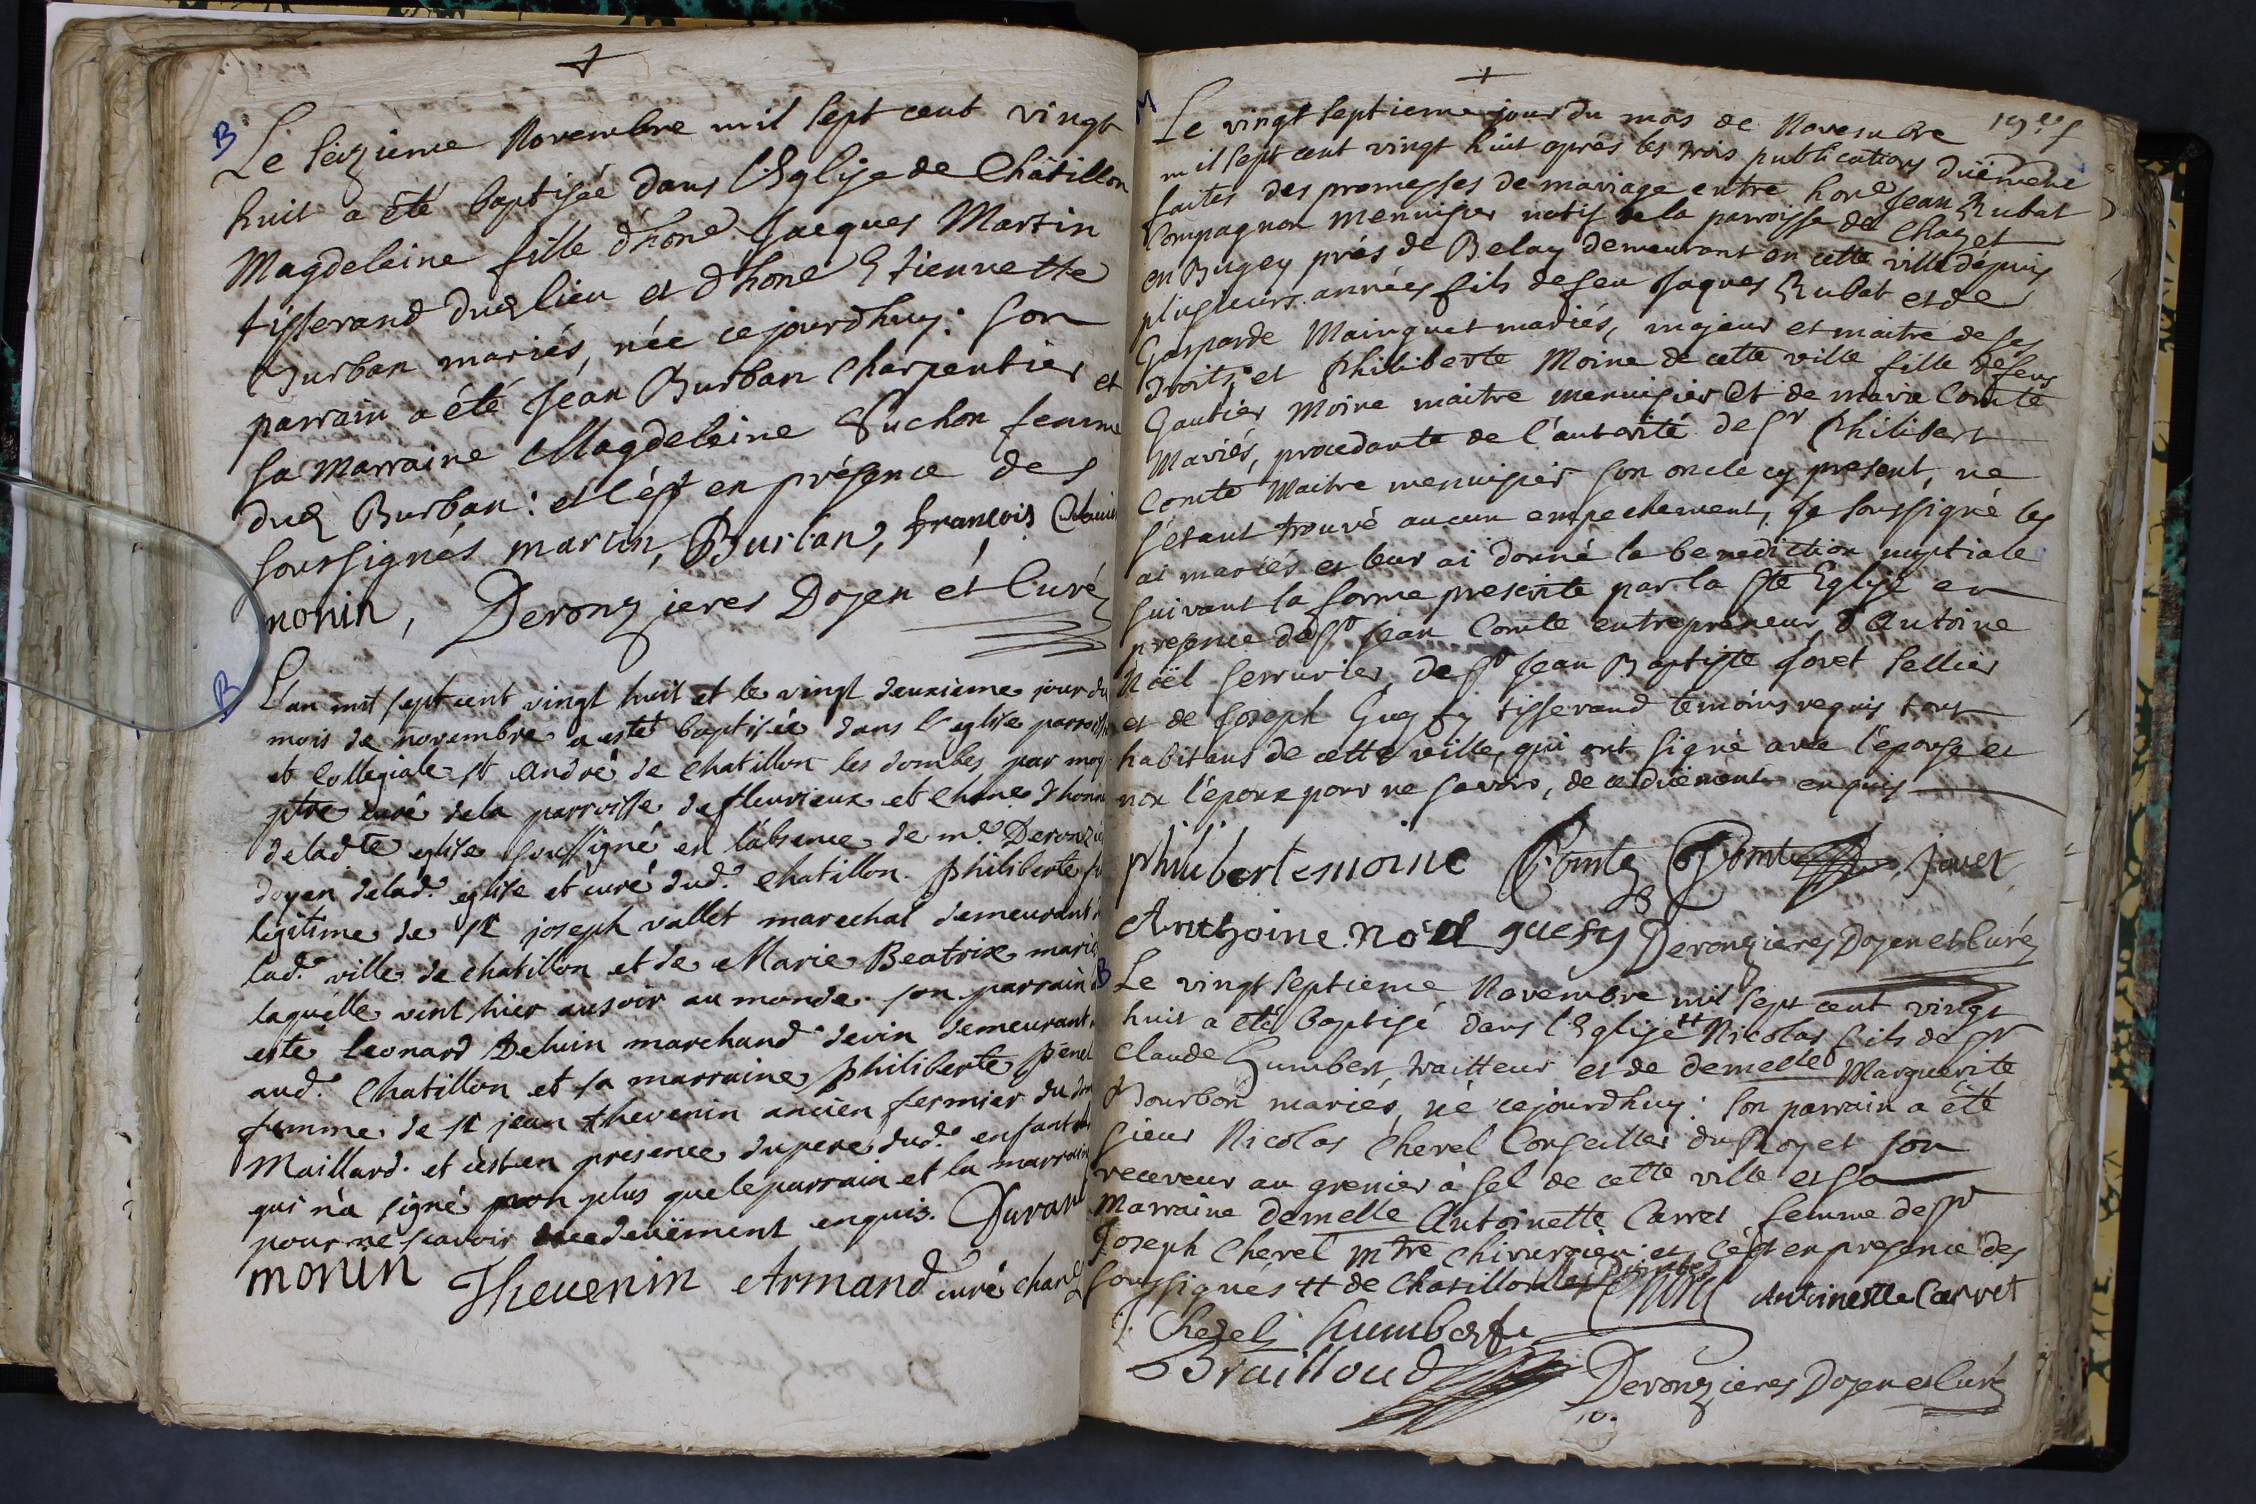 B
Le seizieme Novembre mil sept cent vingt
huit a été baptisée dans l'Eglise de Châtillon
Magdeleine fille d'hone Jacques Martin
tisserand dud lieu et d'hone Etiennette
Burban mariés, née ce jourdhuy: son
parrain a été Jéan Burban Charpentier et
sa Marraine Magdeleine Suchon femme
dud Burban: et c'est en présence des
soussignés martin, Burban, françois
monin, Deronzieres Doyen et Curé
B
L'an mil sept cent vingt huit et le vingt deuxieme jour du
mois de novembre a esté baptisée dans l'eglise paroiss
et Collegiale st andré de chatillon les dombes par moy
ptre curé de la parroisse de fleurieux et chane d'honn
de ladte eglise soussigné en l'absence de mre. Deronzie
doyen de lad. eglise et curé dud. chatillon. philiberte fi
legitime de sr joseph vallet marechal demeurant
lad. ville de chatillon et de Marie Beatrix marié
laquelle vint hier au soir au monde. son parrain
esté leonard Dehuin marchand de vin demeurant
aud. Chatillon et sa marraine philiberte penel
femme de sr jean thevenin ancien fermier du
Maillard. et c'est en presence du pere dud. enfant
qui n'a signé non plus que le parrain et la marrain
pour ne scavoir de ce deuëment enquis. Duran
monin Thevenin Armand curé chane
M
Le vingt septieme jour du mois de Novembre
mil sept cent vingt huit aprés les trois publications duëment
faites des promesses de mariage entre hone Jean Rubat
Compagnon menuisier natif de la parroisse de Chazet
en Bugey prés de Belay demeurant en cette ville dépuis
plusieurs années fils de feu Jaques Rubat et de
Gasparde Mainguet mariés, majeur et maitre de ses
droits; et Philiberte Moine de cette ville fille de feus
Gautier Moine maitre menuisier et de marie Comte
Mariés, procedante de l'autorité de sr Philibert
Comte Maitre menuisier son oncle cy present, ne
s'étant trouvé aucun empechement, Je soussigné les
ai mariés et leur ai donné la benediction nuptiale
suivant la forme prescrite par la ste Eglise en
presence de sr Jean Comte entrepreneur, d'Antoine
Noël serrurier, de sr Jean Baptiste Jovet sellier
et de Joseph Guy tisserand temoins requis tous
habitans de cette ville, qui ont signé avec l'épouse et
non l'époux pour ne savoir, de ce duëment enquis
philibertemoine Comte Comte Jovet
Anthoine noel Deronzieres Doyen et Curé
B
Le vingt septieme Novembre mil sept cent vingt
huit a été baptisé dans l'Eglise ++ Nicolas fils de sr
Claude Humbert, traitteur et de demelle Marguerite
Bourbon mariés, né cejourdhuy: son parrain a été
sieur Nicolas Cherel Conseiller du Roy et son
receveur au grenier à sel de cette ville et sa
Marraine demelle Antoinette Carret femme de sr
Joseph Cherel mtre Chirurgien: et c'est en presence des
soussignés ++ de Chatillon les Dombes Antoinette Carret
Cherel humbert
Brailloud Deronzieres Doyen et Curé